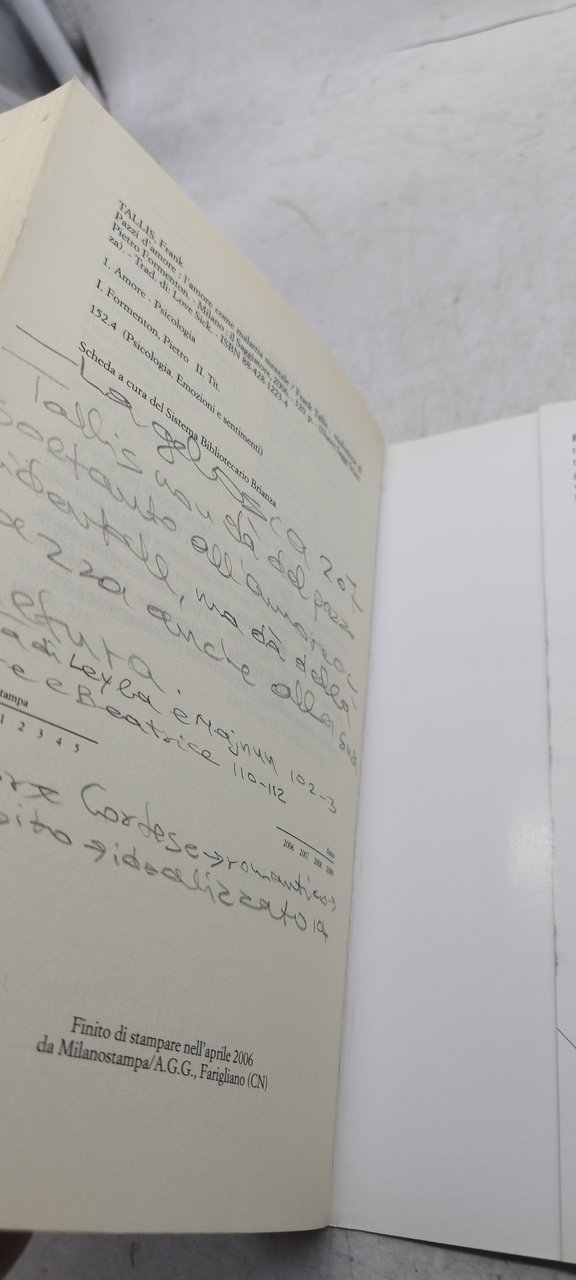 TALLIS, Frank
Pazzi d'amore : l'amore come malattia mentale / Frank Tallis ; traduzione di
Pietro Formenton. - Milano : il Saggiatore, 2006. - 320 p. - (Nuovi Saggi
za). - Trad. di: Love Sick. - ISBN 88-428-1223-4
1. Amore - Psicologia
I. Formenton, Pietro II. Tit.
152.4 (Psicologia. Emozioni e sentimenti)
Scheda a cura del Sistema Bibliotecario Brianza
La gelosia 201
Tallis non dà del pazzo
soltanto all'amore
ma dà della
anche alla sua
di Leyla e Majnun 102-3
e Beatrice 110-112
stampa
1 2 3 4 5
anno
2006 2007 2008 2009
Cortese → romantico →
→ idealizzato 14
Finito di stampare nell'aprile 2006
da Milanostampa/A.G.G., Farigliano (CN)